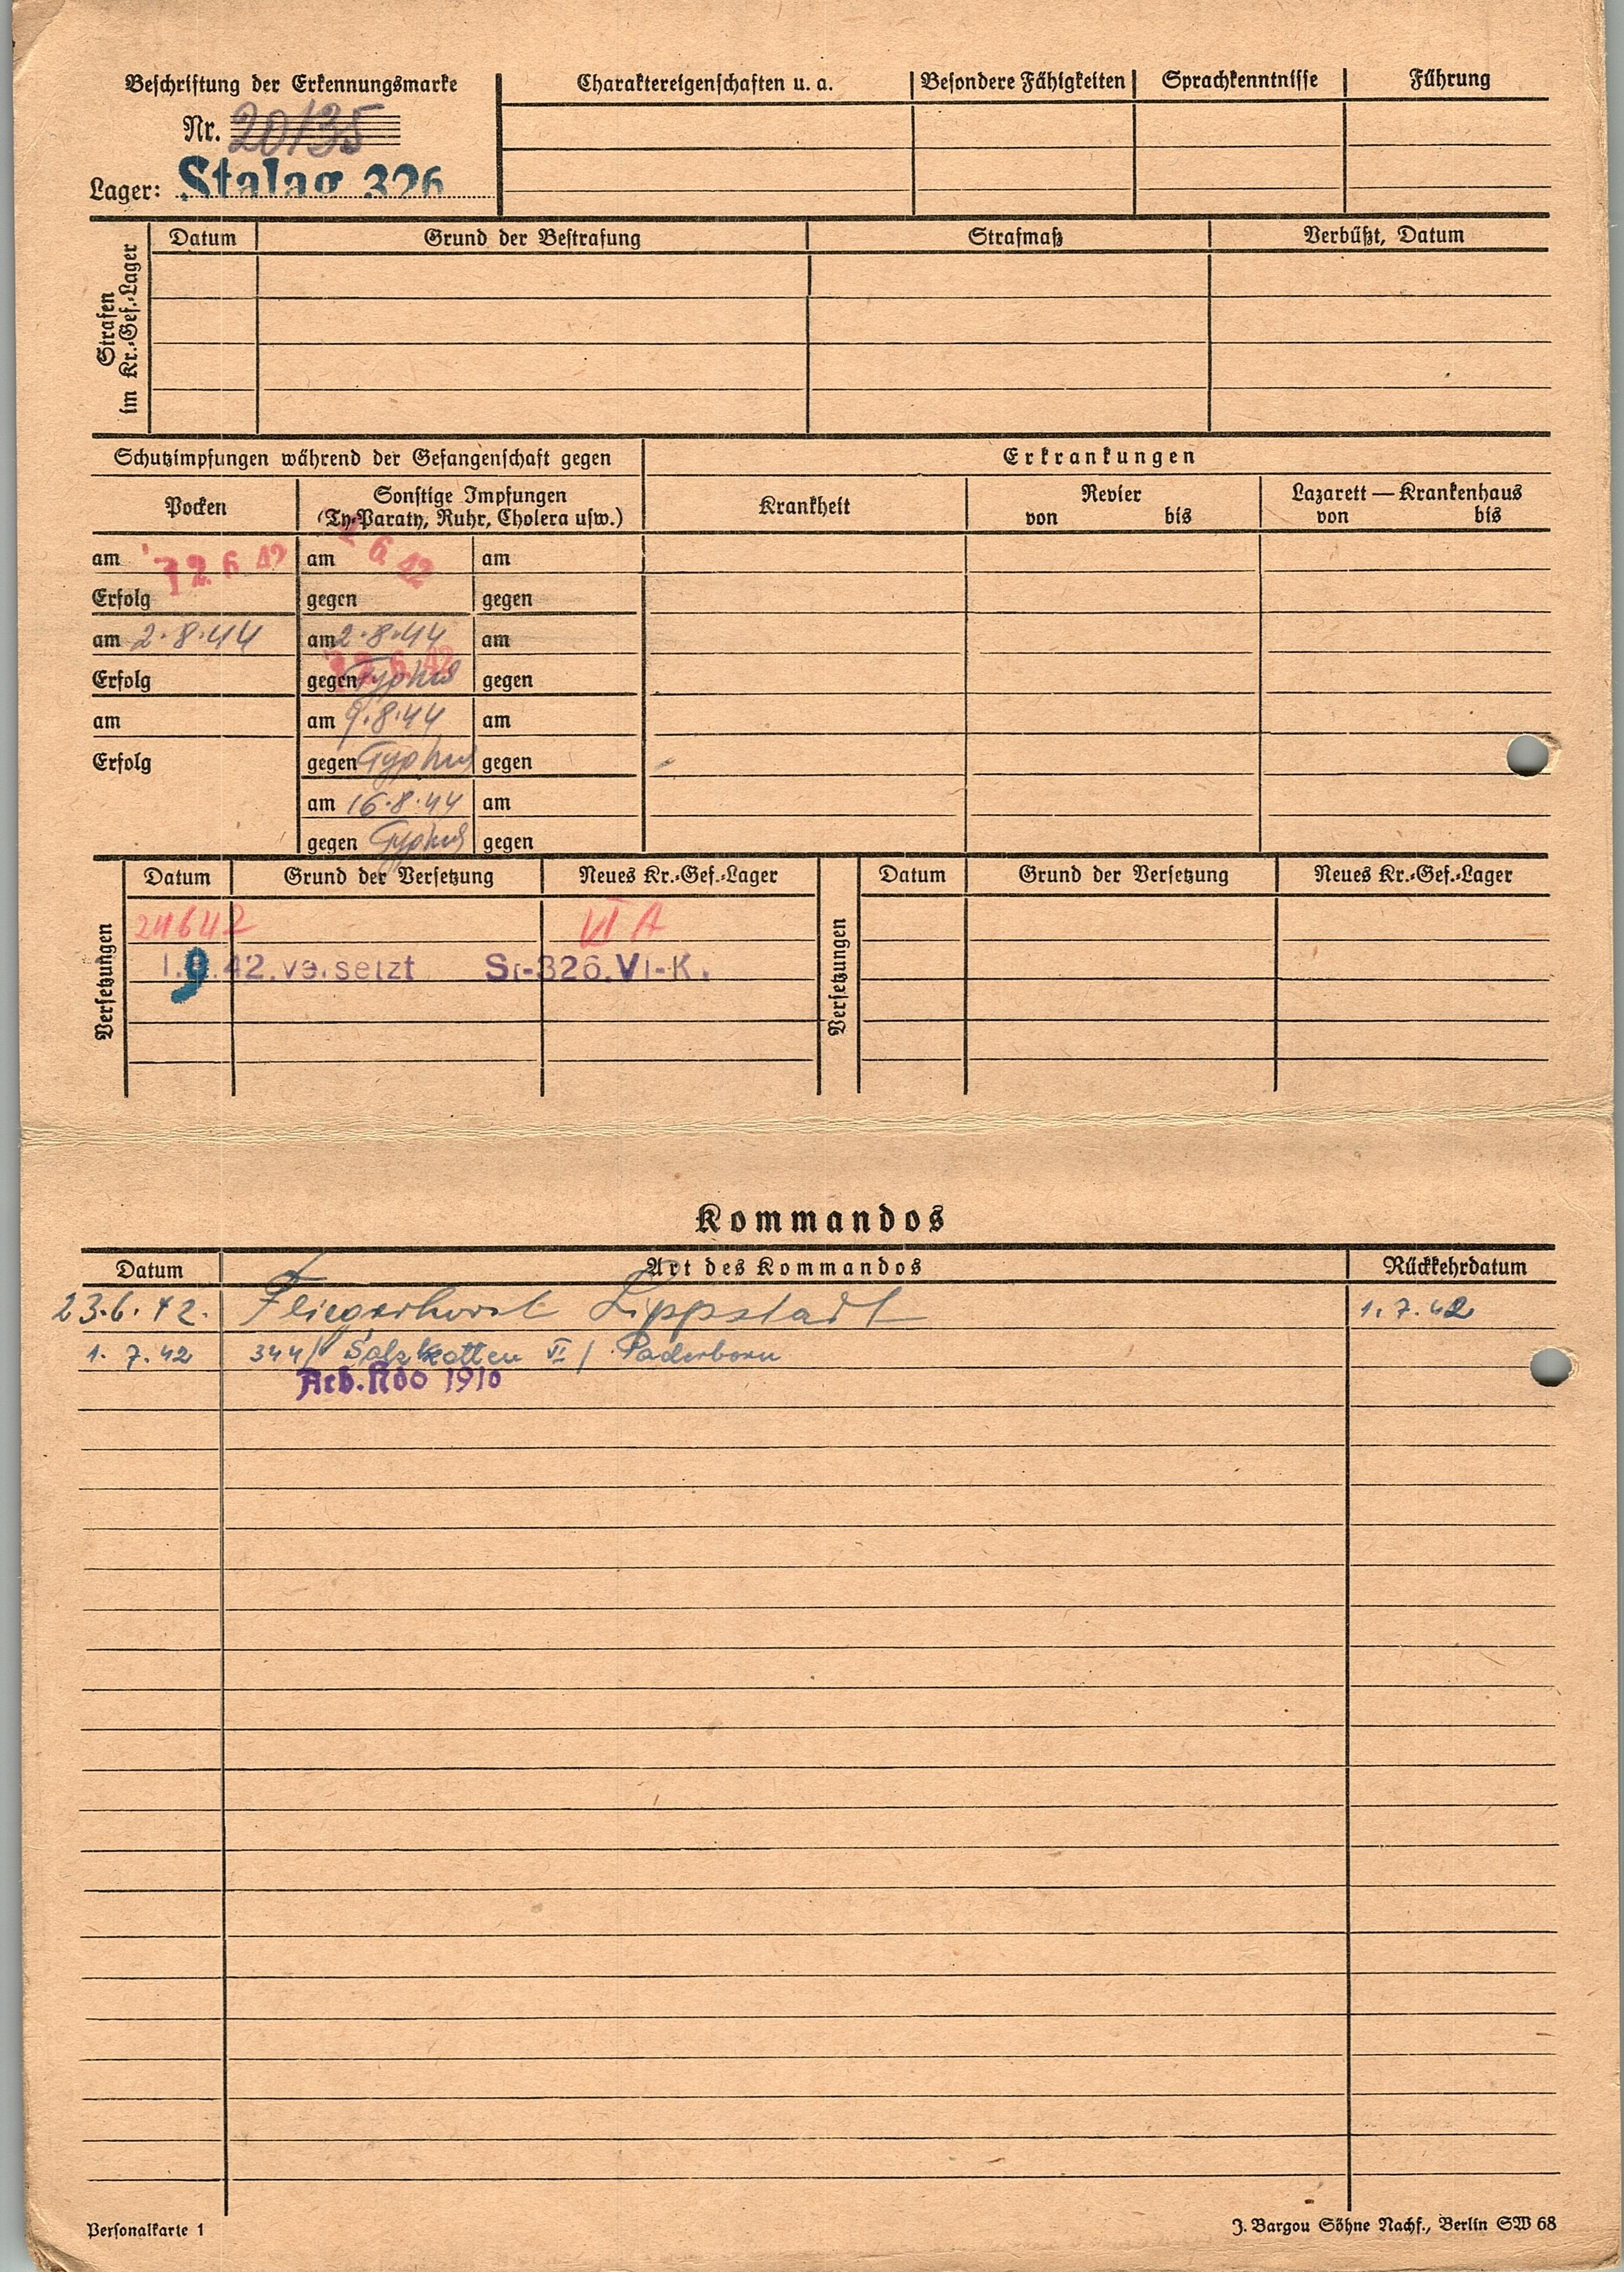 Beschriftung der Erkennungsmarke
Charaktereigenschaften u. a.
Besondere Fähigkeiten
Sprachkenntnisse
Führung
Nr. 20135
Lager: Stalag 326
Strafen
im Kr.-Gef.-Lager
Datum
Grund der Bestrafung
Strafmaß
Verbüßt, Datum
Schutzimpfungen während der Gefangenschaft gegen
Erkrankungen
Pocken
Sonstige Impfungen
(Ty-Paraty, Ruhr, Cholera usw.)
Krankheit
Revier
von bis
Lazarett — Krankenhaus
von bis
am 12. 6 42 am 6. 42 am
Erfolg gegen gegen
am 2.8.44 am 2.8.44 am
12. 6. 42
Erfolg gegen Typhus gegen
am am 9.8.44 am
Erfolg gegen Typhus gegen
am 16.8.44 am
gegen Typhus gegen
Versetzungen
Datum
Grund der Versetzung
Neues Kr.-Gef.-Lager
Versetzungen
Datum
Grund der Versetzung
Neues Kr.-Gef.-Lager
24642 VI A
1.9.42. versetzt 326. VI-K.
Kommandos
Datum
Art des Kommandos
Rückkehrdatum
23.6.42. Fliegerhorst Lippstadt 1.7.42
1. 7. 42 344/ Salzkotten VI / Paderborn
Arb.Kdo 1910
Personalkarte 1
J. Bargou Söhne Nachf., Berlin SW 68